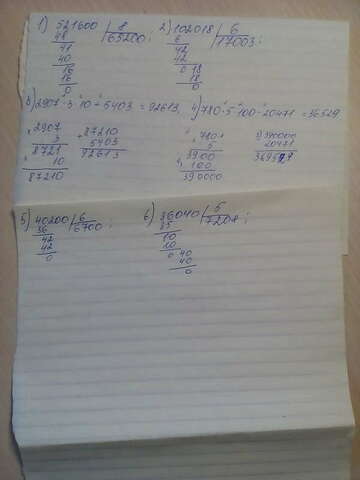 1) 521600 | 8
48 | 65200;
41
40
16
16
0
2) 102018 | 6
6 | 17003;
42
42
0 18
18
0
3) 2907·3·10+5403=92613, 4) 780·5·100-20471=36529
2907
3
8721
10
87210
87210
5403
92613
780
5
3900
100
390000
390000
20471
5) 40200 | 6
36 | 6700;
42
42
0
6) 36040 | 5
35 | 7208;
10
10
0 40
40
0